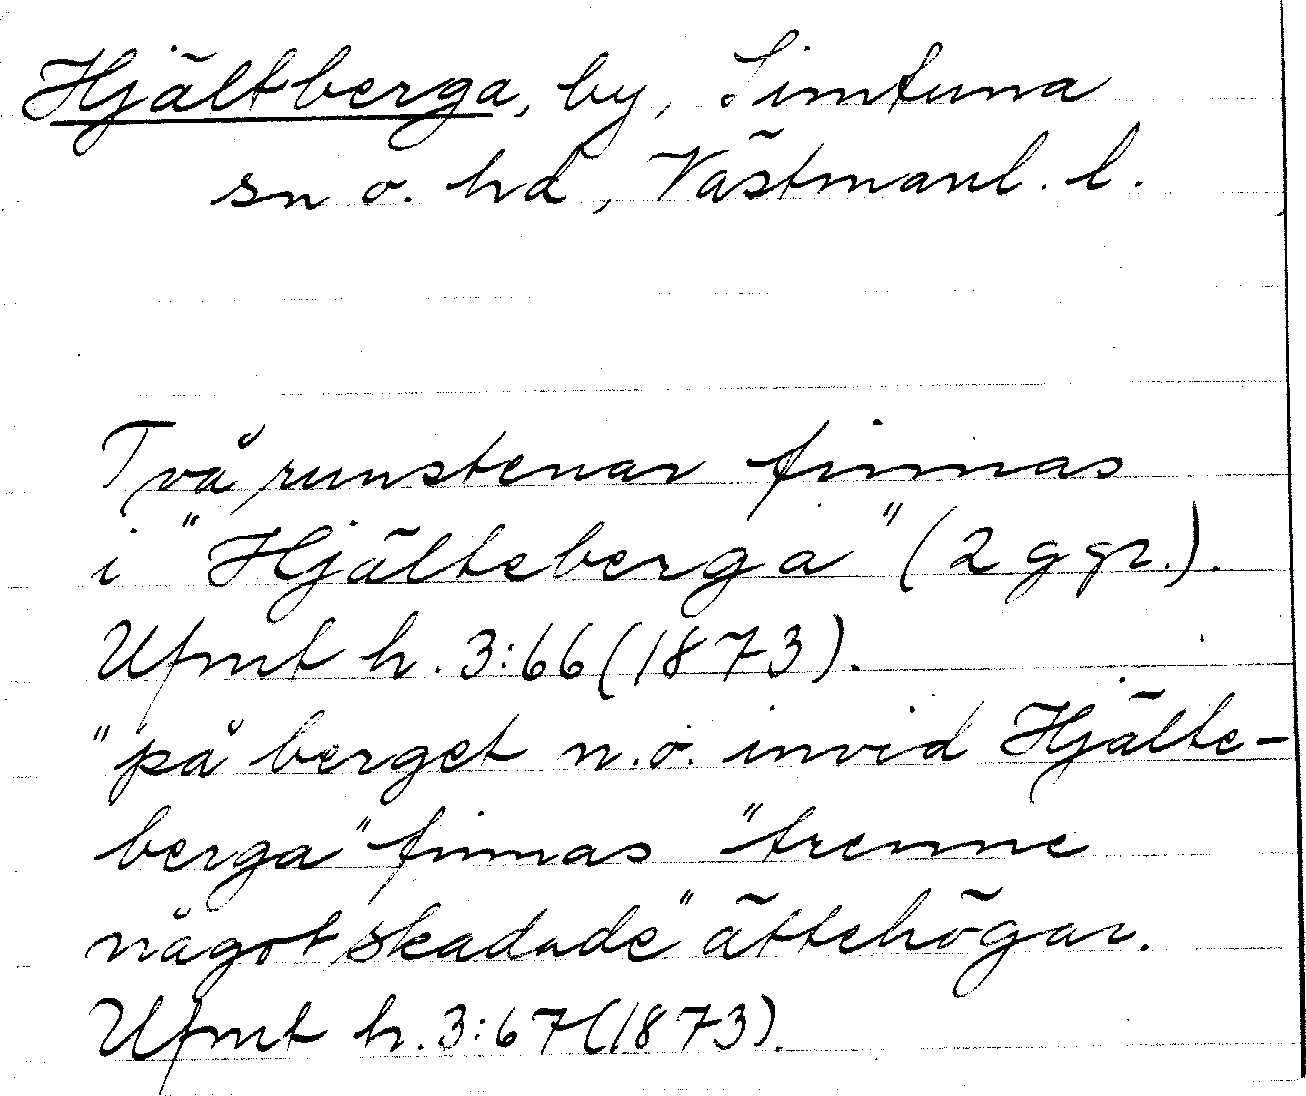 Hjältberga, by, Simtuna
sn o. hd, Västmanl. l.
Två runstenar finnas
i "Hjälteberga" (2 ggr.).
Ufmt h. 3:66 (1873).
"på berget n.o. invid Hjälte-
berga" finnas "trenne
något skadade" ättehögar.
Ufmt h. 3:67 (1873).